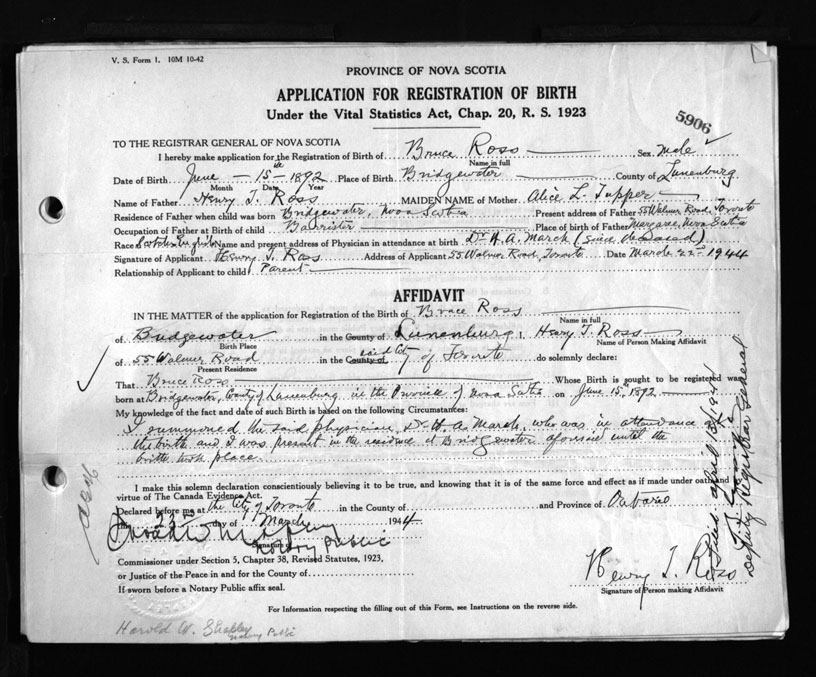 V. S. Form 1. 10M 10-42
PROVINCE OF NOVA SCOTIA
APPLICATION FOR REGISTRATION OF BIRTH
Under the Vital Statistics Act, Chap. 20, R. S. 1923
5906
TO THE REGISTRAR GENERAL OF NOVA SCOTIA
I hereby make application for the Registration of Birth of Bruce Ross Sex male
Name in full
Date of Birth June - 15th - 1892 Place of Birth Bridgewater County of Lunenburg
Month Date Year
Name of Father Henry T. Ross MAIDEN NAME of Mother Alice L. Tupper
Residence of Father when child was born Bridgewater, Nova Scotia Present address of Father 55 Walmer Road, Toronto
Occupation of Father at Birth of child Barrister Place of birth of Father Margaree, Nova Scotia
Race Scotch English Name and present address of Physician in attendance at birth Dr. H. A. March (since deceased)
Signature of Applicant Henry T. Ross Address of Applicant 55 Walmer Road, Toronto Date March 22nd 1944
Relationship of Applicant to child Parent
AFFIDAVIT
IN THE MATTER of the application for Registration of the Birth of Bruce Ross
Name in full
of Bridgewater in the County of Lunenburg I, Henry T. Ross
Birth Place Name of Person Making Affidavit
of 55 Walmer Road in the County of said City of Toronto do solemnly declare:
Present Residence
That Bruce Ross Whose Birth is sought to be registered was
born at Bridgewater, County of Lunenburg in the Province of Nova Scotia on June 15th, 1892
My knowledge of the fact and date of such Birth is based on the following Circumstances:
I summoned the said physician, Dr. H. A. March, who was in attendance at
the birth and I was present in the residence at Bridgewater aforesaid until the
birth took place.
I make this solemn declaration conscientiously believing it to be true, and knowing that it is of the same force and effect as if made under oath and
virtue of The Canada Evidence Act.
Declared before me at the City of Toronto in the County of and Province of Ontario
this 22nd day of March 1944
Notary Public
Signature of
Commissioner under Section 5, Chapter 38, Revised Statutes, 1923,
or Justice of the Peace in and for the County of
If sworn before a Notary Public affix seal.
Henry T. Ross
Signature of Person making Affidavit
For Information respecting the filling out of this Form, see Instructions on the reverse side.
Harold W. Shapley
Notary Public
Deputy Registrar General